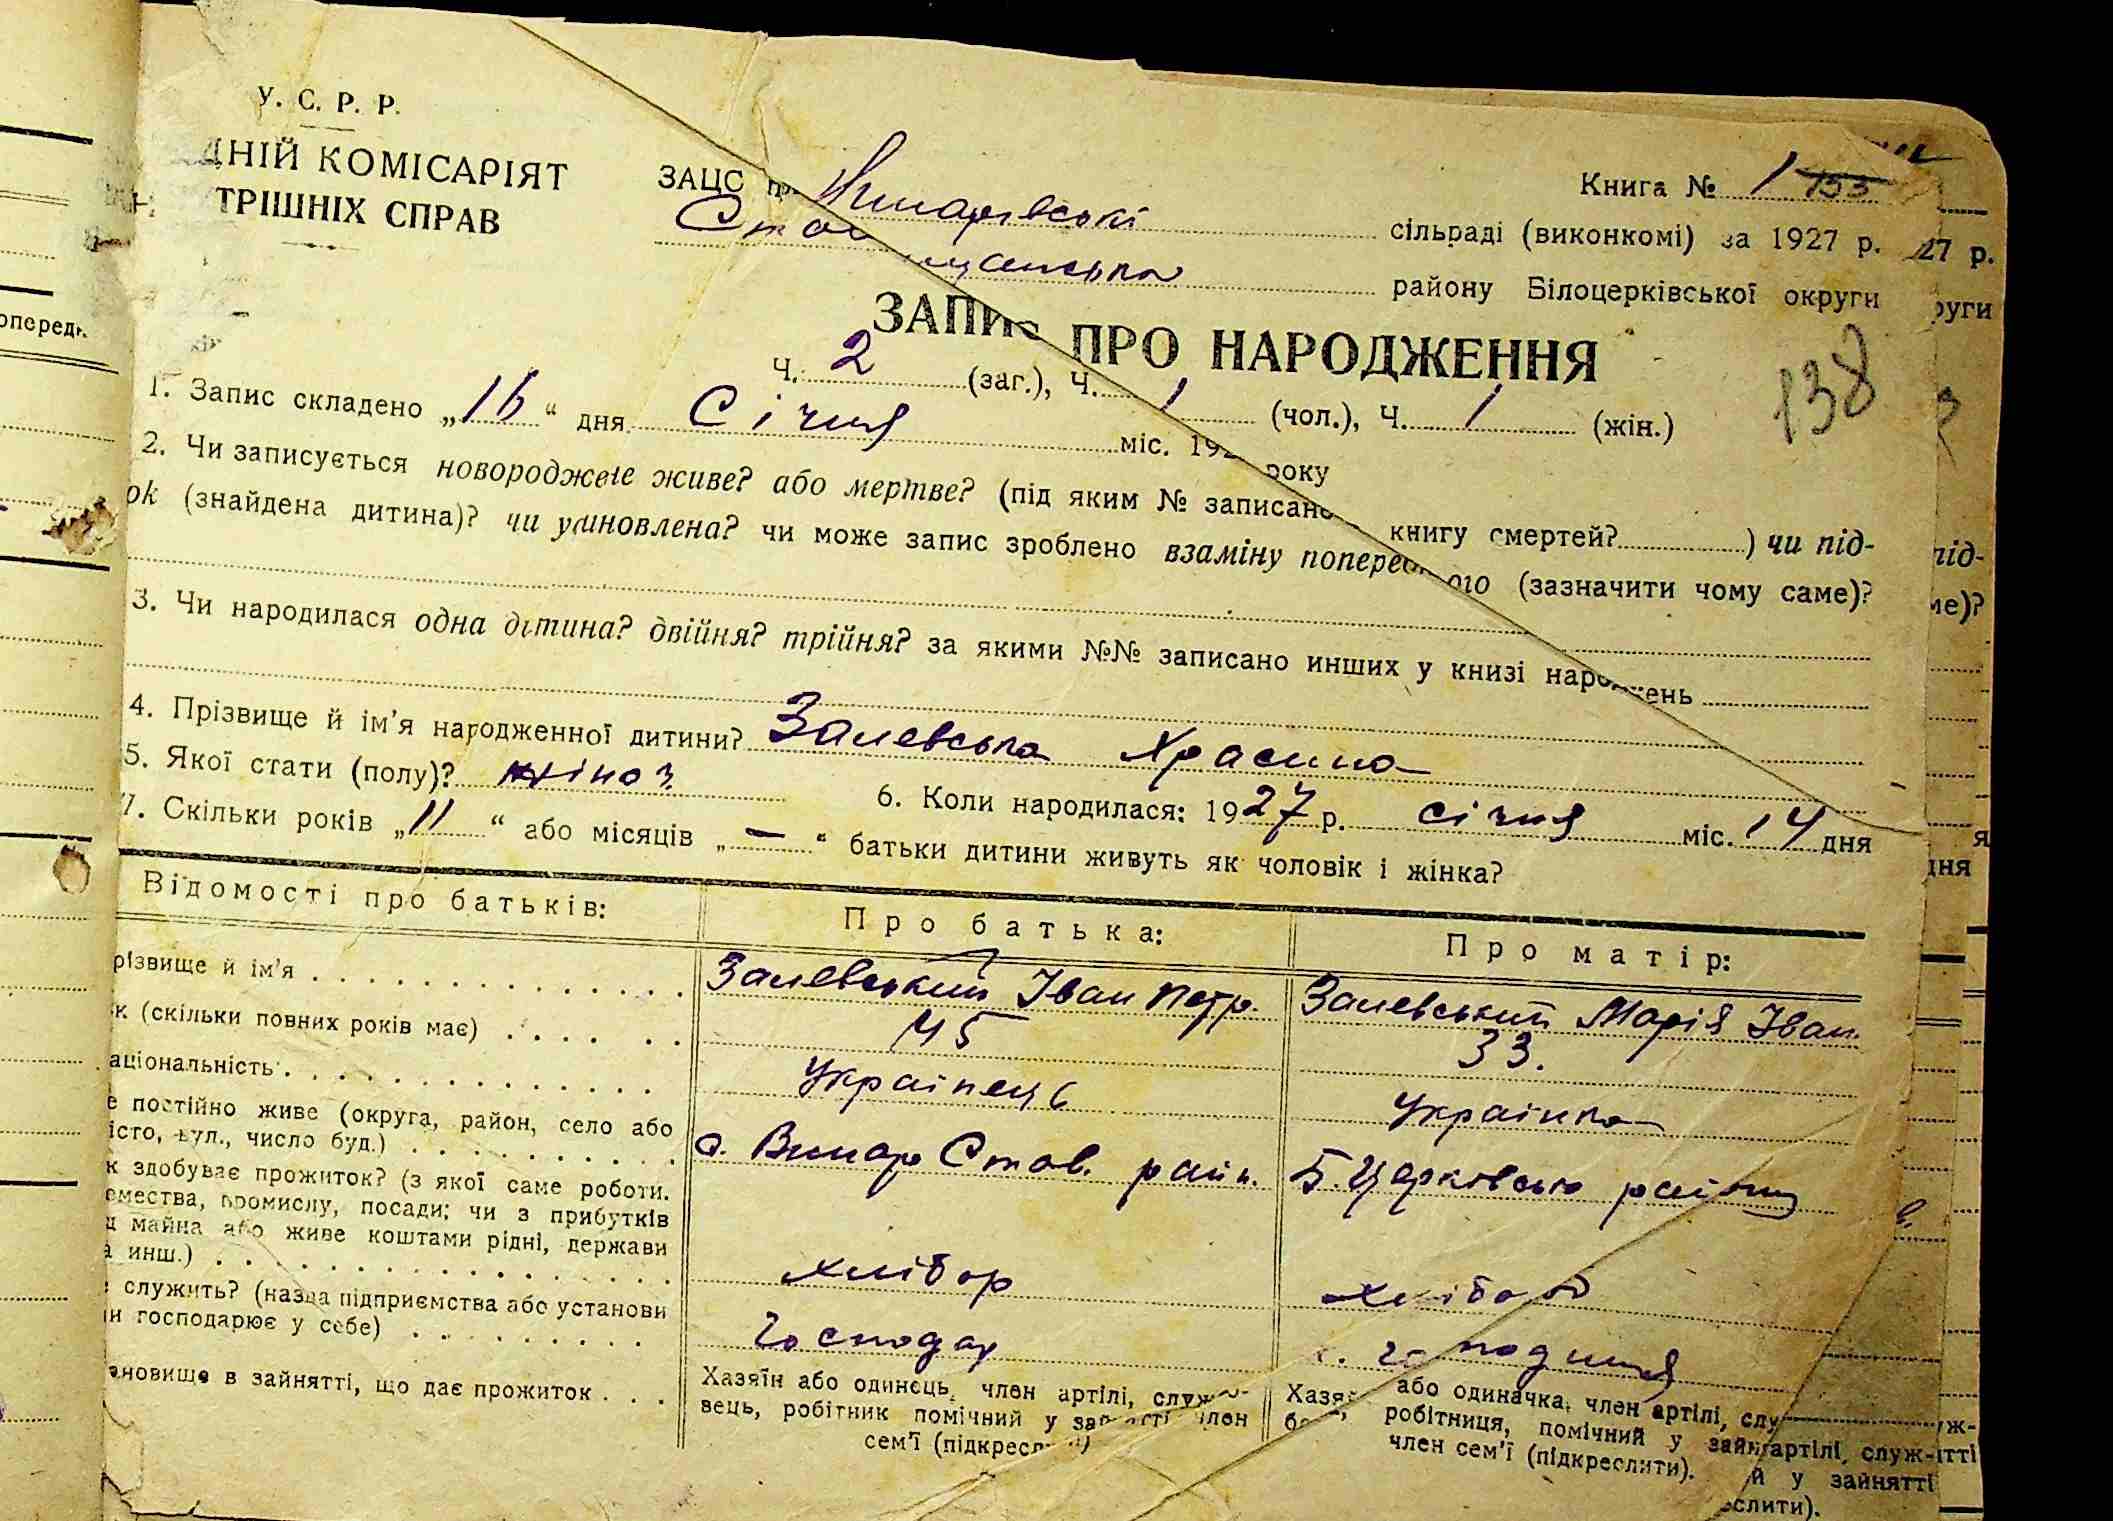 У. С. Р. Р.
ДНІЙ КОМІСАРІЯТ
ТРІШНІХ СПРАВ
ЗАЦС при
Книга № 1 153
сільраді (виконкомі) за 1927 р.
району Білоцерківської округи
ЗАПИС ПРО НАРОДЖЕННЯ
138
Ч. 2 (заг.), Ч. 1 (чол.), Ч. 1 (жін.)
1. Запис складено „16“ дня Січня міс. 192 року
2. Чи записується новороджене живе? або мертве? (під яким № записано книгу смертей? ) чи під-
ок (знайдена дитина)? чи умновлена? чи може запис зроблено взаміну попереднього (зазначити чому саме)?
3. Чи народилася одна дитина? двійня? трійня? за якими №№ записано инших у книзі народжень
4. Прізвище й ім'я народженної дитини? Залевська Красина
5. Якої стати (полу)? жіноч.
6. Коли народилася: 1927 р. січня міс. 14 дня
7. Скільки років „11“ або місяців „—“ батьки дитини живуть як чоловік і жінка?
Відомості про батьків:
Про батька:
Про матір:
різвище й ім'я
Залевський Іван Петр.
Залевський Марія Іван.
к (скільки повних років має)
45
33.
аціональність
Українець
Українка
е постійно живе (округа, район, село або
істо, вул., число буд.)
с. Винар Став. райн.
Б. Церковсько району
к здобуває прожиток? (з якої саме роботи.
емества, промислу, посади; чи з прибутків
д майна або живе коштами рідні, держави
а инш.)
хлібор
хлібороб
служить? (назва підприємства або установи
и господарює у себе)
господар
господиня
ановище в зайнятті, що дає прожиток
Хазяїн або одинець, член артілі, служ-
вець, робітник помічний у зайнятті член
сем'ї (підкреслити)
Хазяй або одиначка, член артілі, слу
робітниця, помічний у зайн
член сем'ї (підкреслити).